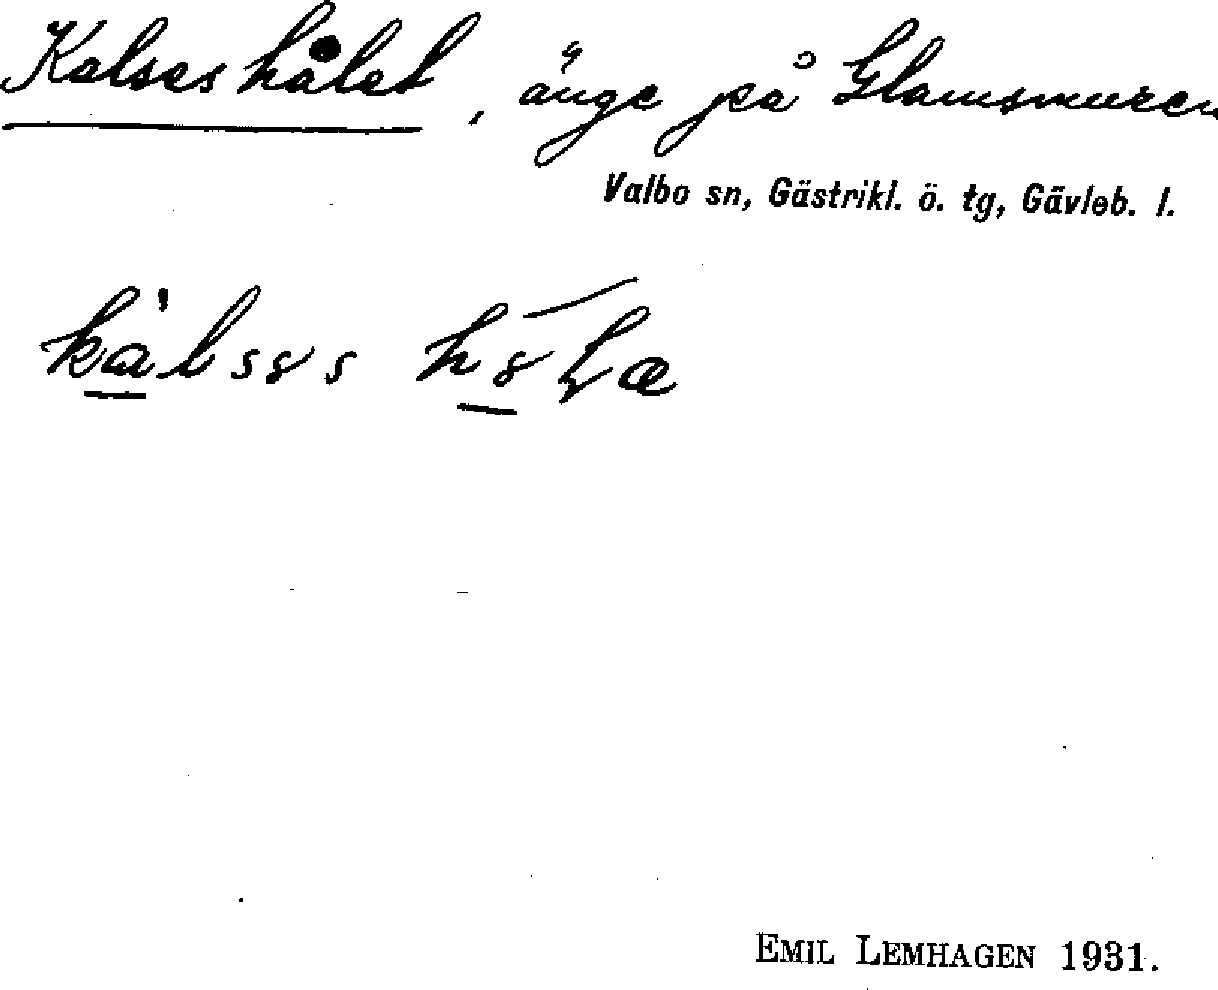 Kalseshålet, änge på Glamsmuren
Valbo sn, Gästrikl. ö. tg, Gävleb. l.
EMIL LEMHAGEN 1931.